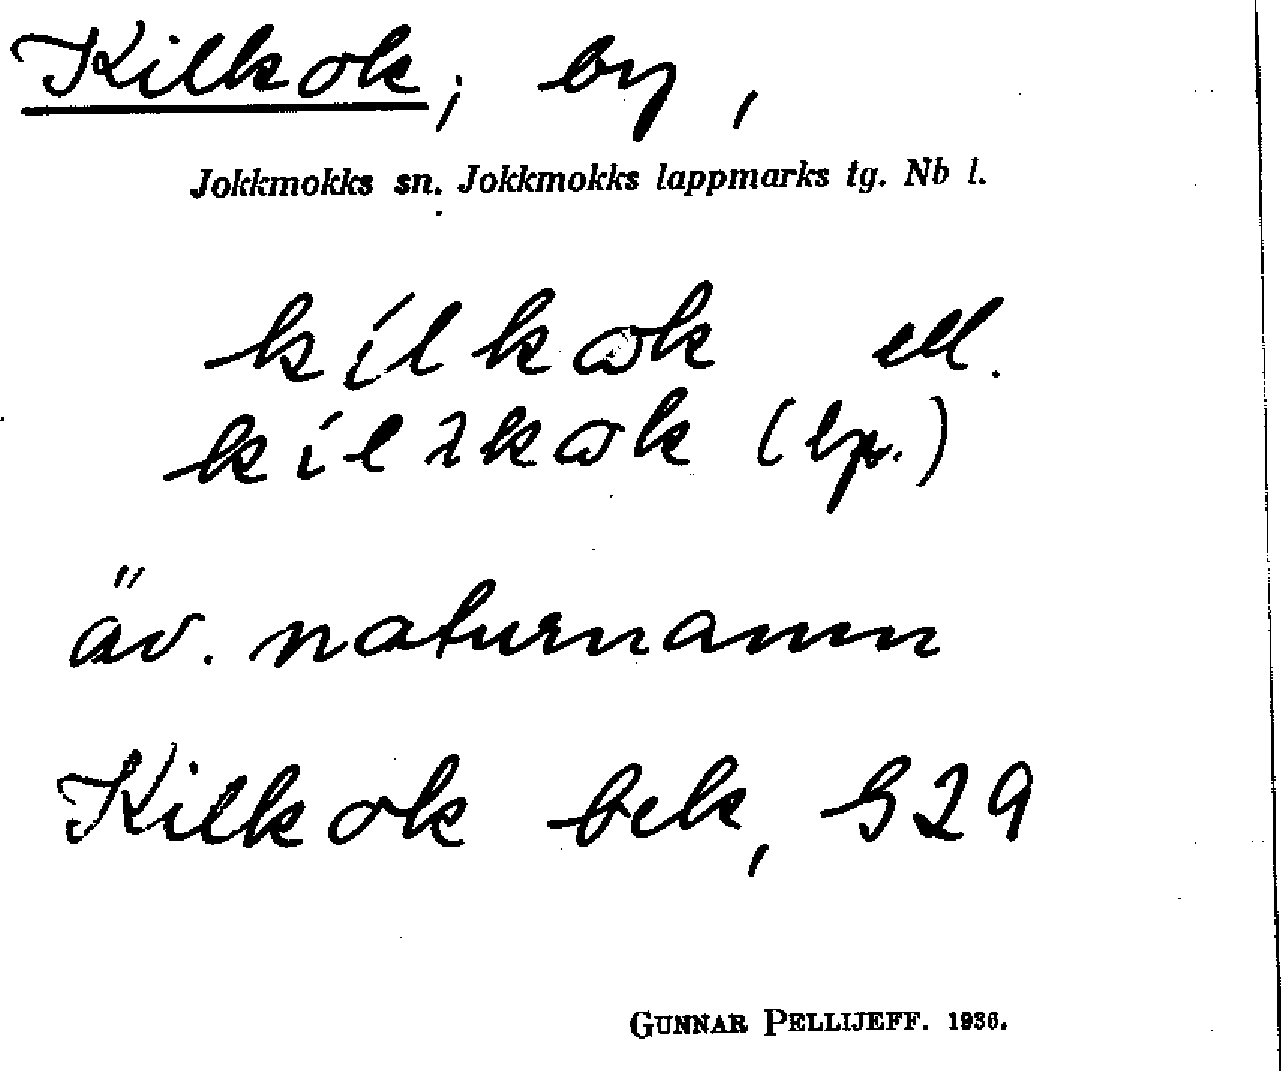 Kilkok, by,
Jokkmokks sn. Jokkmokks lappmarks tg. Nb l.
kílkωk ell.
kílɿkωk (lp.)
äv. naturnamn
Kilkok bek, S29
GUNNAR PELLIJEFF. 1936.